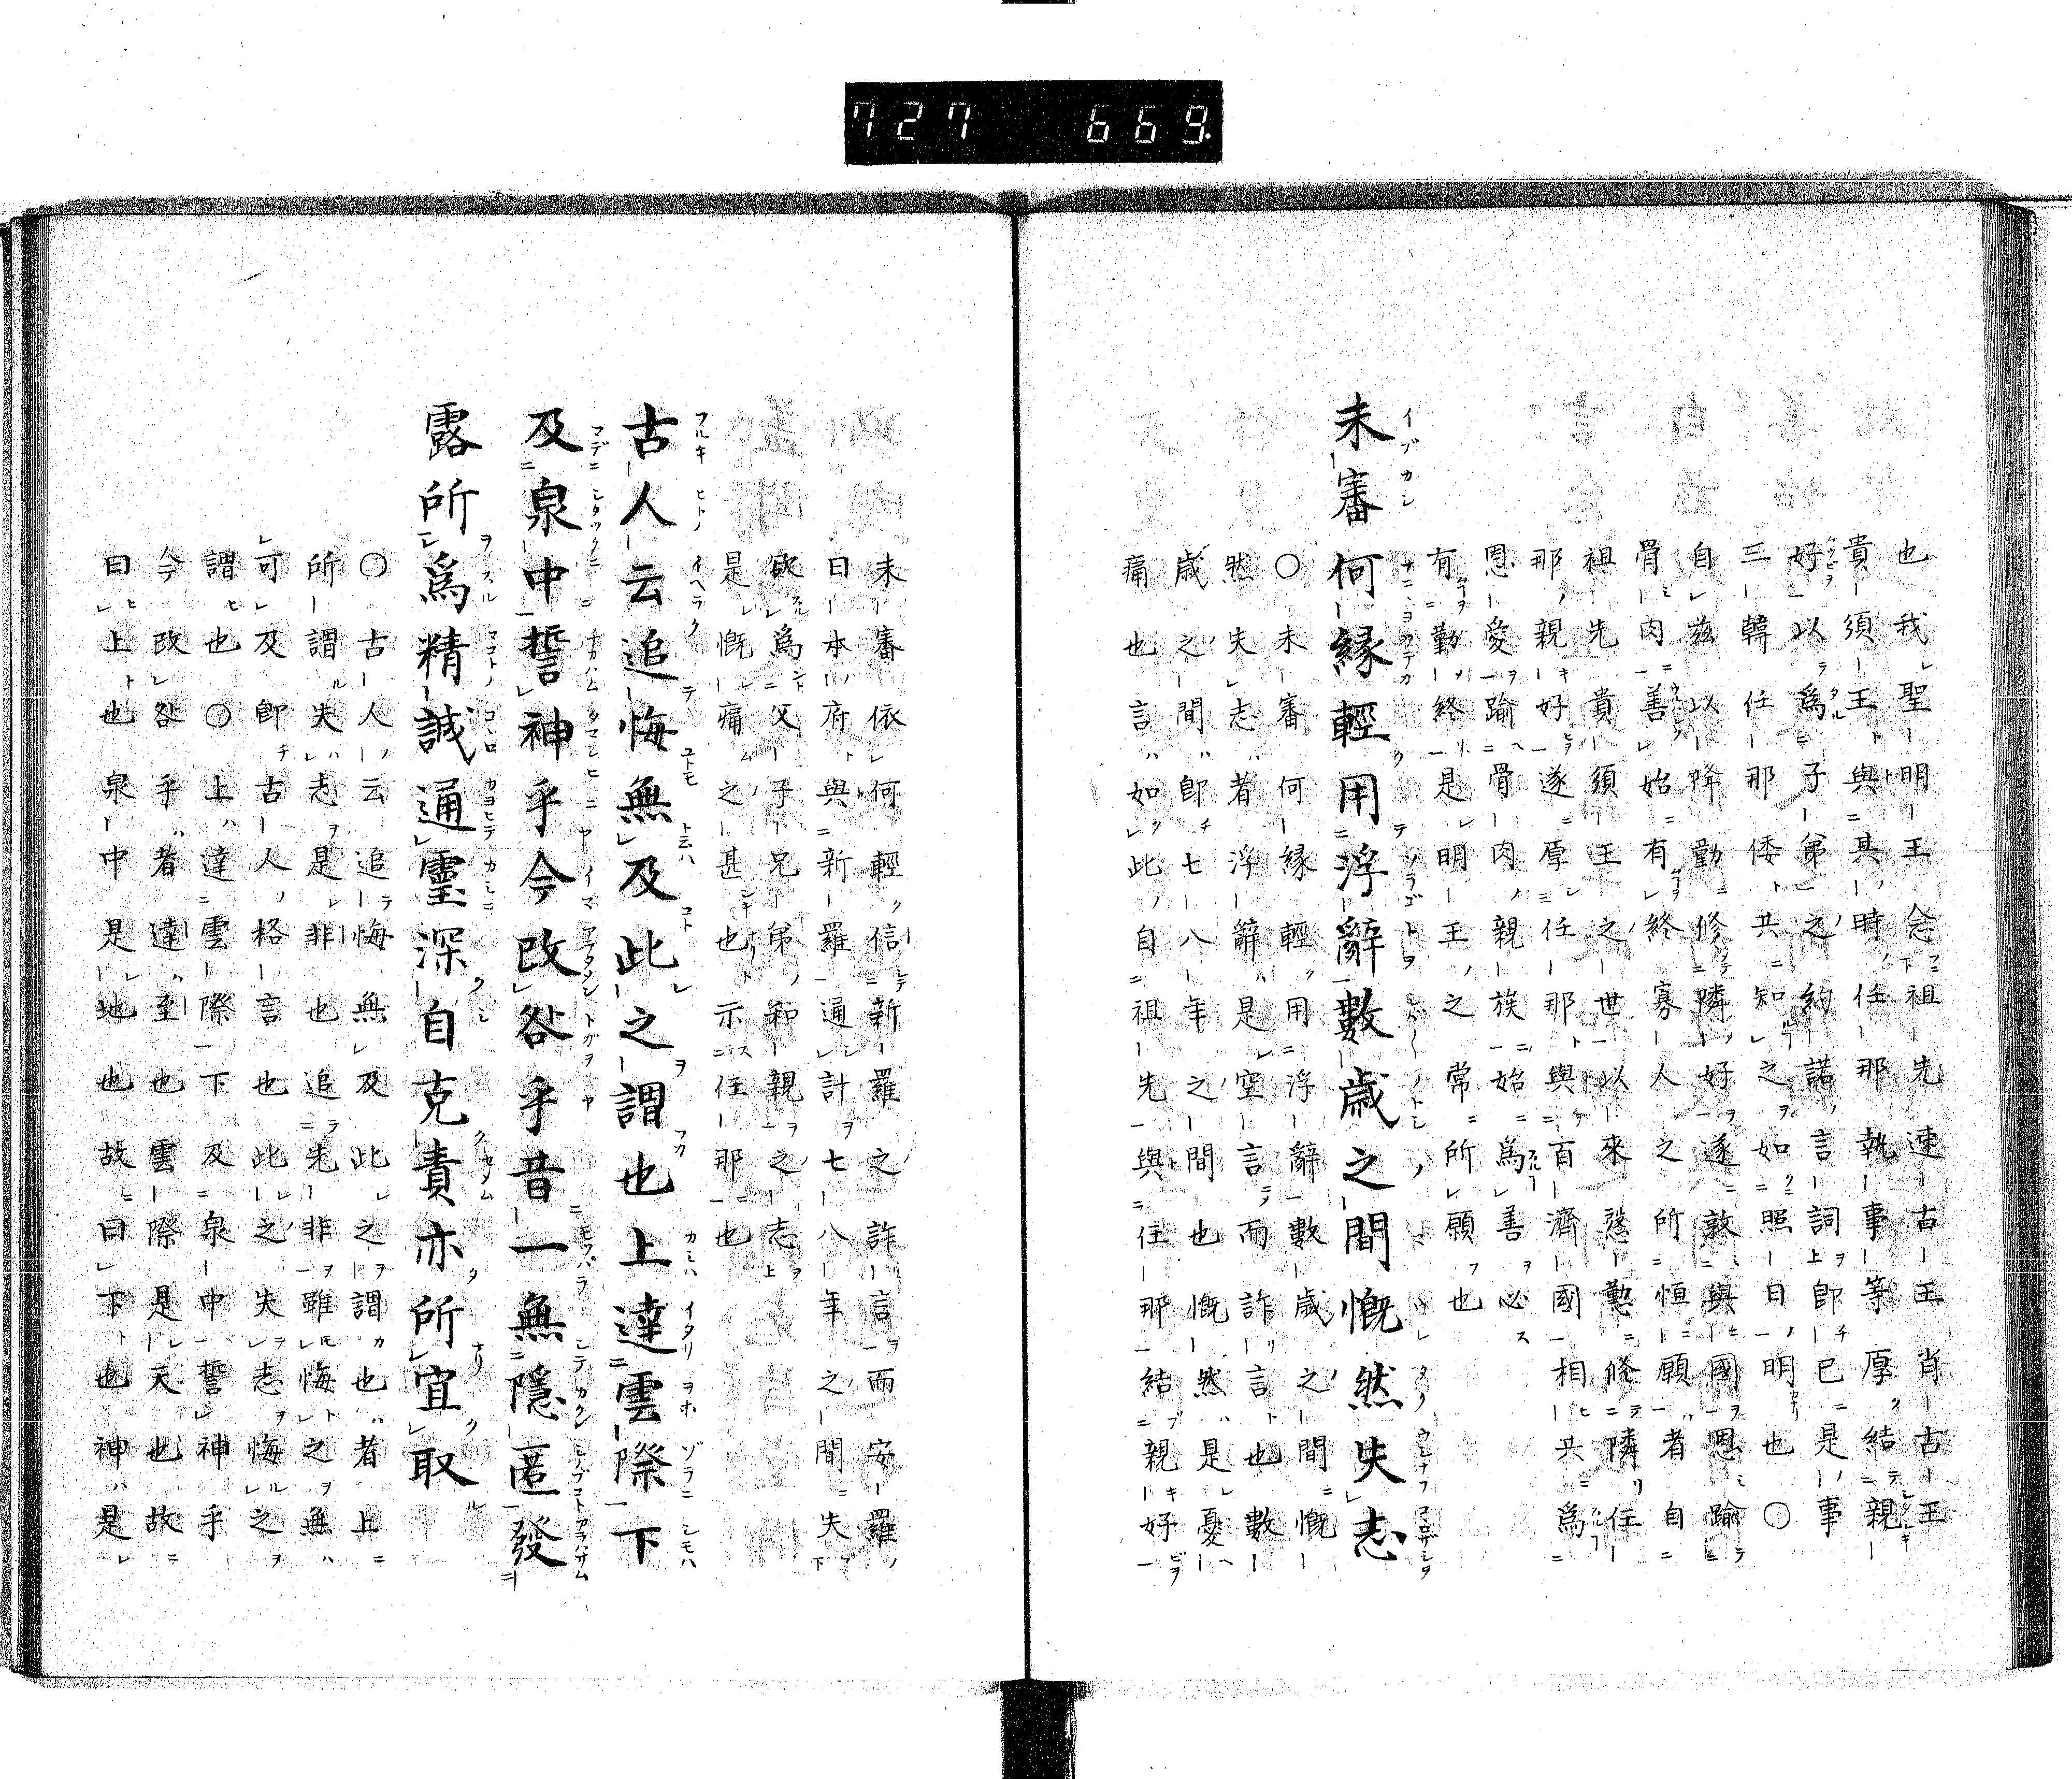 727 669
也我聖明王念祖先速古王肖古王
貴須王與其時任那執事等厚結親
好以為子弟之約諾言詞即已是事
三韓任那倭共知之如照日明也〇
自茲以降勤修隣好遂敦與國恩踰
骨肉善始有終寡人之所恒願者自
祖先貴須王之世以來慇懃修隣任
那親好遂厚任那與百濟國相共為
恩愛踰骨肉親族始為善必
有勤終是明王之常所願也
未審何縁輕用浮辭數歳之間慨然失志
〇未審何縁輕用浮辭數歳之間慨
然失志者浮辭是空言而詐言也數
歳之間即七八年之間也慨然是憂
痛也言如此自祖先與任那結親好
未審依何輕信新羅之詐言而安羅
日本府與新羅通計七八年之間失
欲為父子兄弟和親之志
是慨痛之甚也示任那也
古人云追悔無及此之謂也上達雲際下
及泉中誓神乎今改咎乎昔一無隱匿發
露所為精誠通靈深自克責亦所宜取
〇古人云追悔無及此之謂也者上
所謂失志是非也追先非雖悔之無
可及即古人格言也此之失志悔之
謂也〇上達雲際下及泉中誓神乎
今改咎乎者達至也雲際是天也故
曰上也泉中是地也故曰下也神是